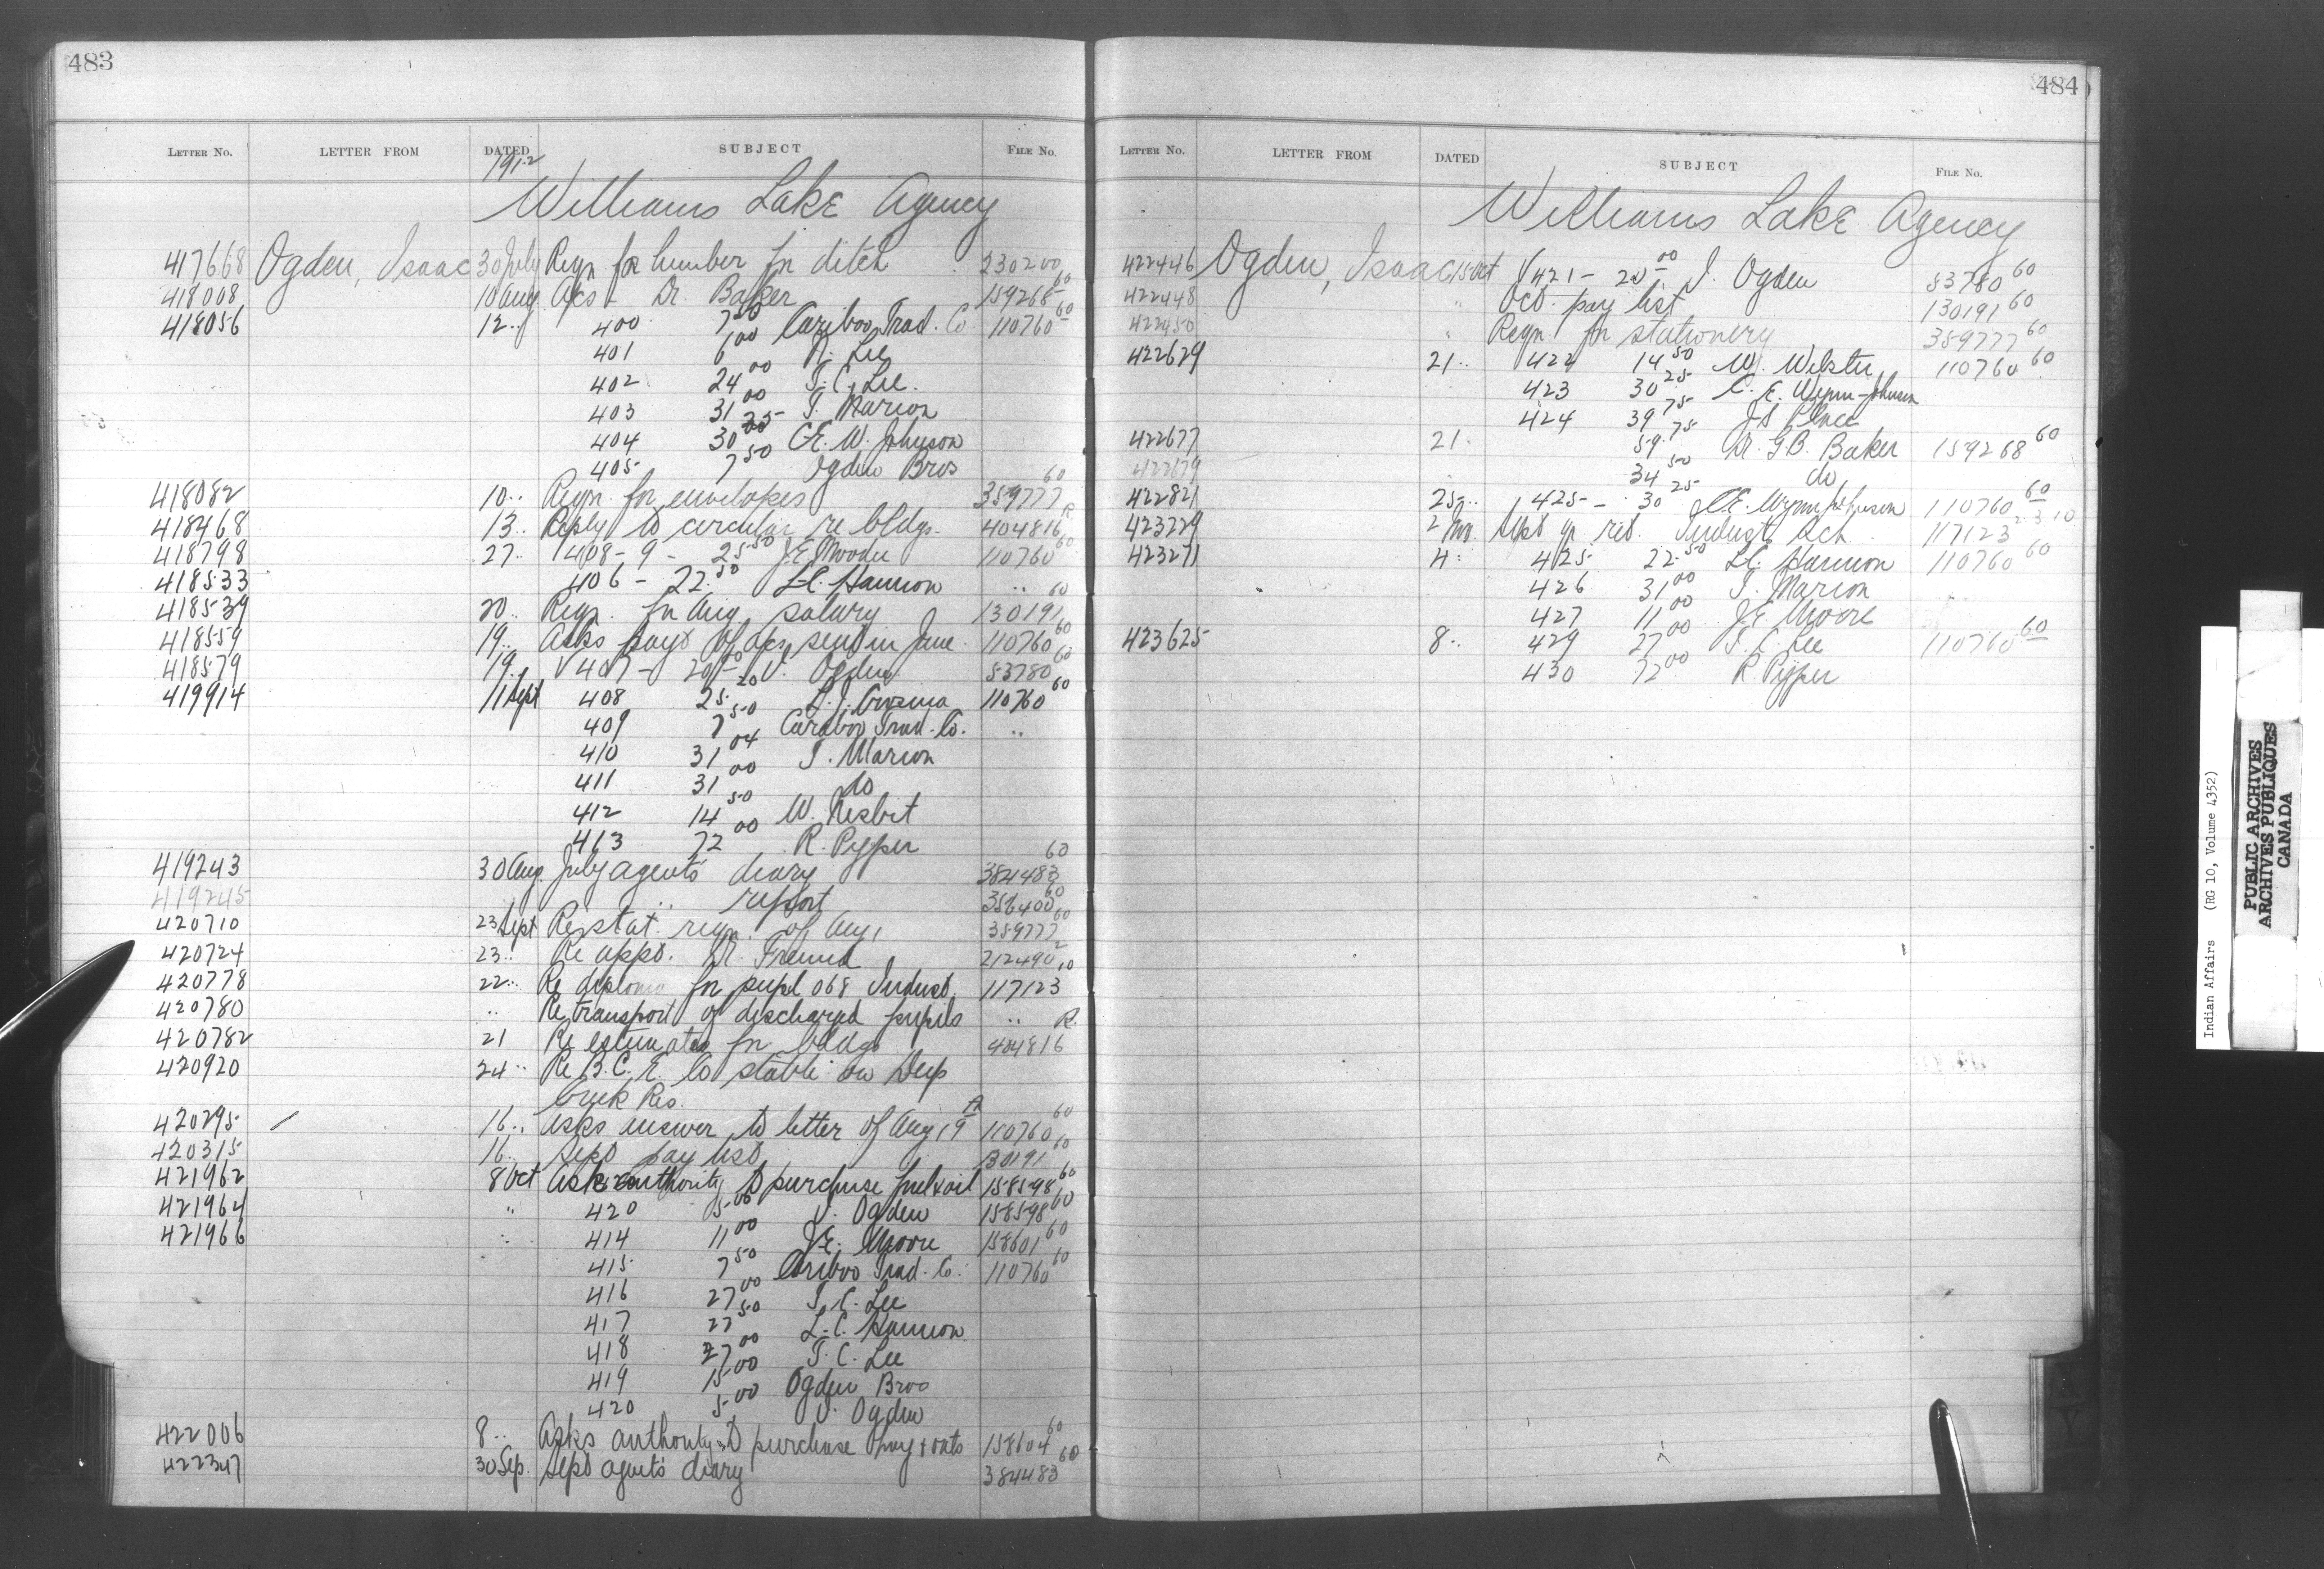 483
LETTER NO. LETTER FROM DATED SUBJECT FILE NO.
1912
Williams Lake Agency
417668 Ogden, Isaac 30 July Reqn for lumber for ditch 230200 60
418008 10 Aug. Acs - Dr. Baker 159268 60
418056 12 .. 400 7 50 Cariboo Trad. Co 110760 60
401 6 00 R. Lee
402 24 00 T. C. Lee.
403 31 00 T. Marion
404 30 25 C.E. W. Johnson
405 7 50 Ogden Bros
418082 10 .. Reqn. for envelopes 359777 60
418468 13 .. Reply to circular re bldgs. 404816 R
418798 27 .. 408-9 - 25 50 J.E. Moore 110760 60
418533 406 - 22 50 L.C. Hannon ..
418539 20 .. Reqn. for Aug. salary 130191 60
418559 19 .. Asks payt of acs sent in June 110760 60
418579 19 .. V 407 - 20 I. Ogden 53780 60
419914 11 Sept 408 25 20 110760 60
409 7 50 Cariboo Trad. Co. ..
410 31 04 T. Marion
411 31 00 do
412 14 50 W. Nesbit
413 72 00 R. Pypper
419243 30 Aug. July agent's diary 384483 60
419245 .. report 356400 60
420710 23 Sept Re stat. reqn. of Aug. 359777 60
420724 23 .. Re appt. Dr. 212490 2
420778 22 .. Re diploma for pupil 068 Indust. 117123 10
420780 .. Re transport of discharged pupils ..
420782 21 Re estimates for bldgs 404816 R.
420920 24 .. Re B.C. E. Co stable on Deep
Creek Res.
420295 / 16 .. Asks answer to letter of Aug 19th 110760 60
420315 16 .. Sept pay list 130191 60
421962 8 Oct Asks authority to purchase fuel & oil 158598 60
421964 " 420 5 00 I. Ogden 158598 60
421966 .. 414 11 00 J.E. Moore 158601 60
415 7 50 Cariboo Trad. Co. 110760 60
416 27 00 T. C. Lee
417 22 50 L. C. Hannon
418 27 00 T. C. Lee
419 15 00 Ogden Bros
420 5 00 I. Ogden
422006 8 .. Asks authority to purchase hay & oats 158604 60
422347 30 Sep. Sept agent's diary 384483 60
484
LETTER NO. LETTER FROM DATED SUBJECT FILE NO.
Williams Lake Agency
422446 Ogden, Isaac 15 Oct V 421 - 20 00 I. Ogden 53780 60
422448 " Oct. pay list 130191 60
422450 " Reqn for stationery 359777 60
422629 21 .. 422 14 50 W. 110760 60
423 30 25 C. E. Wynn-Johnson
424 39 75 J S Place
422677 21 . 59 75 Dr. G B. Baker 159268 60
422679 34 50 do
422821 25 .. 425 - 30 25 C.E. Wynn Johnson 110760 60
423229 2 Nov. Sept qr. ret. Indust. Sch. 117123 2 3 10
423271 4 .. 425 22 50 L.C. Hannon 110760 60
426 31 00 T. Marion
427 11 00 J.E Moore
423625 8 .. 429 27 00 T. C Lee 110760 60
430 72 00 R Pypper
Indian Affairs (RG 10, Volume 4352)
PUBLIC ARCHIVES
ARCHIVES PUBLIQUES
CANADA